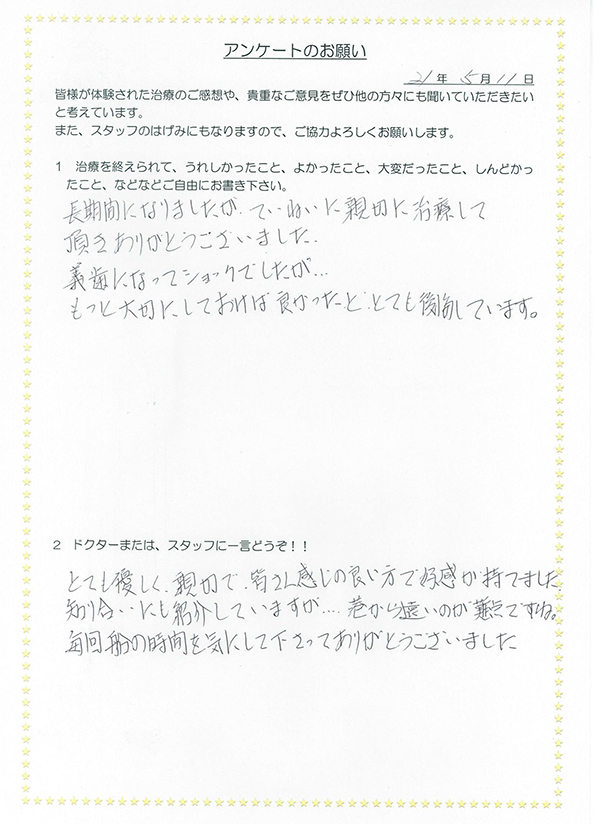 アンケートのお願い
21年 5月11日
皆様が体験された治療のご感想や、貴重なご意見をぜひ他の方々にも聞いていただきたい
と考えています。
また、スタッフのはげみにもなりますので、ご協力よろしくお願いします。
1 治療を終えられて、うれしかったこと、よかったこと、大変だったこと、しんどかっ
たこと、などなどご自由にお書き下さい。
長期間になりましたが、ていねいに親切に治療して
頂きありがとうございました。
義歯になってショックでしたが…
もっと大切にしておけば良かった…と、とても後悔しています。
2 ドクターまたは、スタッフに一言どうぞ!!
とても優しく、親切で、皆さん感じの良い方で好感が持てました
知り合いにも紹介していますが…. 港から遠いのが難点ですね。
毎回船の時間を気にして下さってありがとうございました